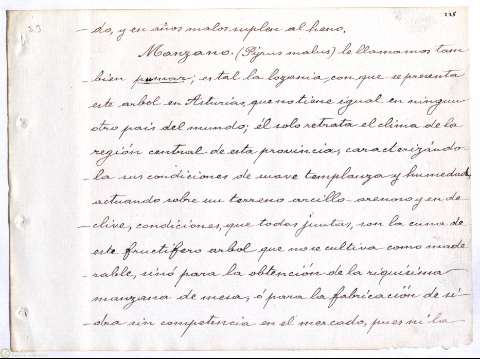 225
23
do, y en años malos suplen al heno.
Manzano. (Pyrus malus) le llamamos tam
bien pumar, es tal la lozanía, con que se presenta
este arbol en Asturias, que no tiene igual en ningun
otro pais del mundo; él solo retrata el clima de la
región central de esta provincia, caracterizándo
la sus condiciones de suave templanza y humedad,
actuando sobre un terreno arcillo-arenoso y en de
clive, condiciones, que todas juntas, son la cuna de
este fructifero arbol que no se cultiva como made
rable, sinó para la obtención de la riquisima
manzana de mesa, ó para la fabricación de si
dra sin competencia en el mercado, pues ni la